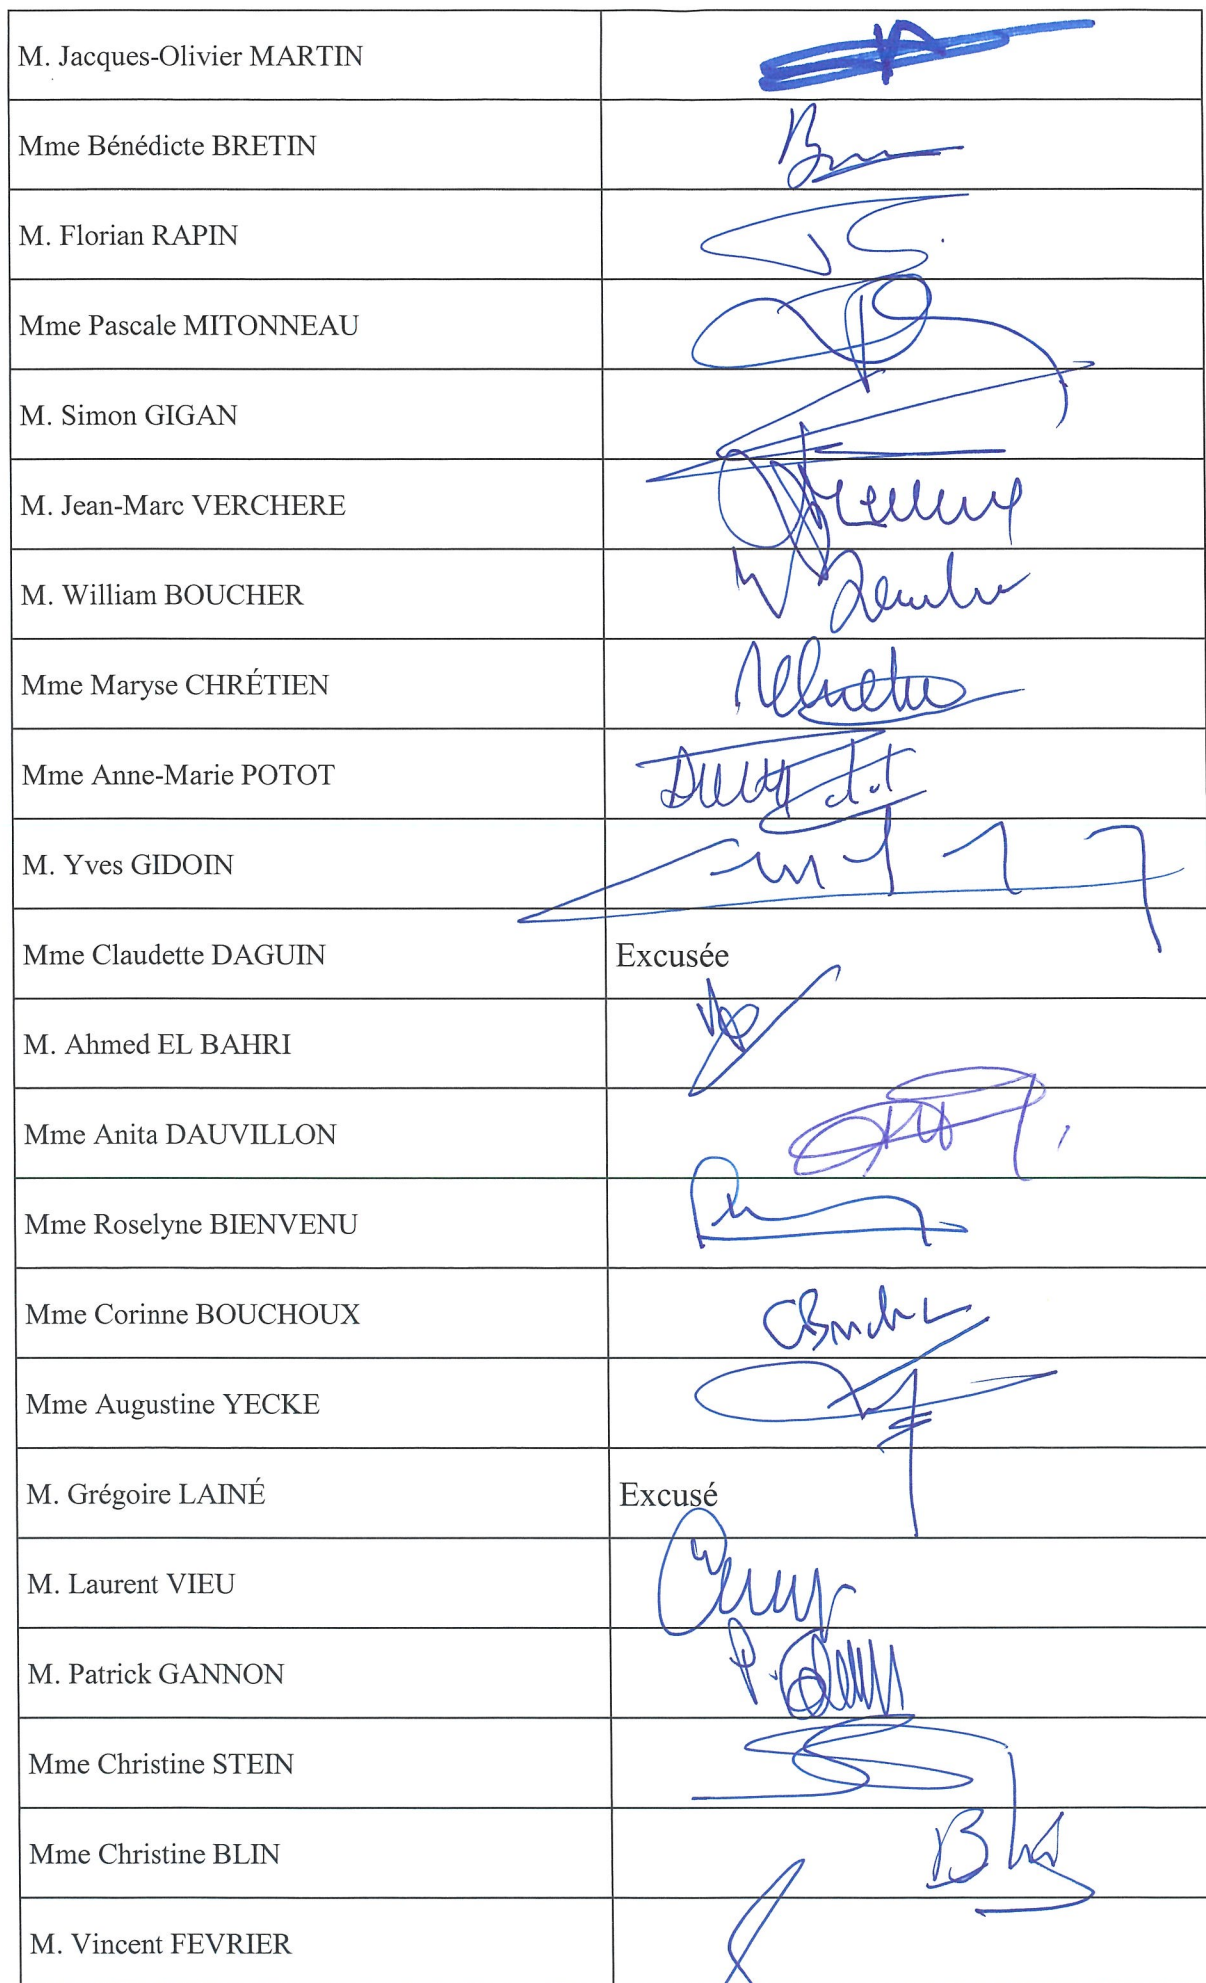 M. Jacques-Olivier MARTIN
Mme Bénédicte BRETIN
M. Florian RAPIN
Mme Pascale MITONNEAU
M. Simon GIGAN
M. Jean-Marc VERCHERE
M. William BOUCHER
Mme Maryse CHRÉTIEN
Mme Anne-Marie POTOT
M. Yves GIDOIN
Mme Claudette DAGUIN Excusée
M. Ahmed EL BAHRI
Mme Anita DAUVILLON
Mme Roselyne BIENVENU
Mme Corinne BOUCHOUX
Mme Augustine YECKE
M. Grégoire LAINÉ Excusé
M. Laurent VIEU
M. Patrick GANNON
Mme Christine STEIN
Mme Christine BLIN
M. Vincent FEVRIER